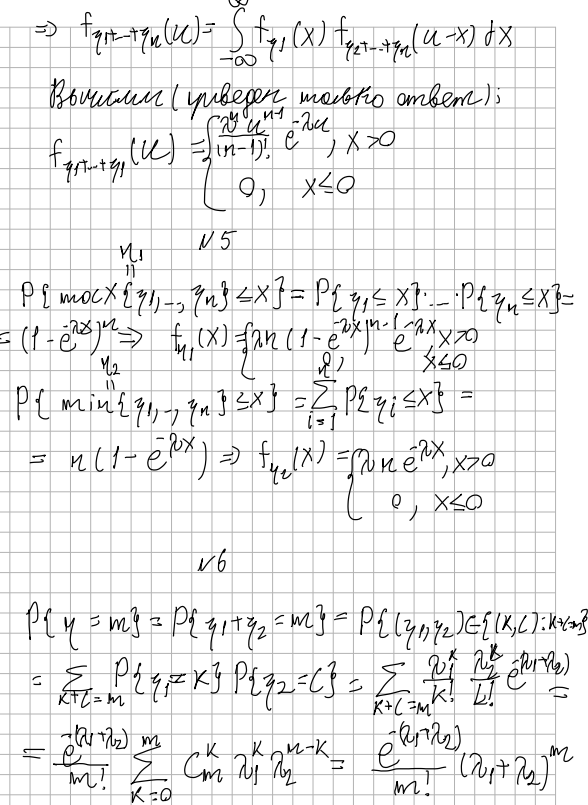 ⇒ f_{η1+...+ηn}(u) = ∫_{-∞}^{∞} f_{η1}(x) f_{η2+...+ηn}(u-x) dx
Вычислим (приведен только ответ):
f_{η1+...+η1}(u) = { λ^n u^{n-1} / (n-1)! e^{-λu}, x>0
0, x≤0
N5
η1
P{max{η1,..,ηn} ≤ x} = P{η1 ≤ x}·...·P{ηn ≤ x} =
= (1-e^{-λx})^n ⇒ f_{η1}(x) = { λn (1-e^{-λx})^{n-1} e^{-λx}, x>0
0, x≤0
η2
P{min{η1,..,ηn} ≤ x} = Σ_{i=1}^{n} P{ηi ≤ x} =
= n(1-e^{-λx}) ⇒ f_{η2}(x) = { λn e^{-λx}, x>0
0, x≤0
N6
P{η = m} = P{η1+η2 = m} = P{(η1,η2) ∈ {(K,L): K+L=m}}
= Σ_{K+L=m} P{η1=K} P{η2=L} = Σ_{K+L=m} λ1^K/K! λ2^K/L! e^{-(λ1+λ2)} =
= e^{-(λ1+λ2)}/m! Σ_{K=0}^{m} C_m^K λ1^K λ2^{m-K} = e^{-(λ1+λ2)}/m! (λ1+λ2)^m